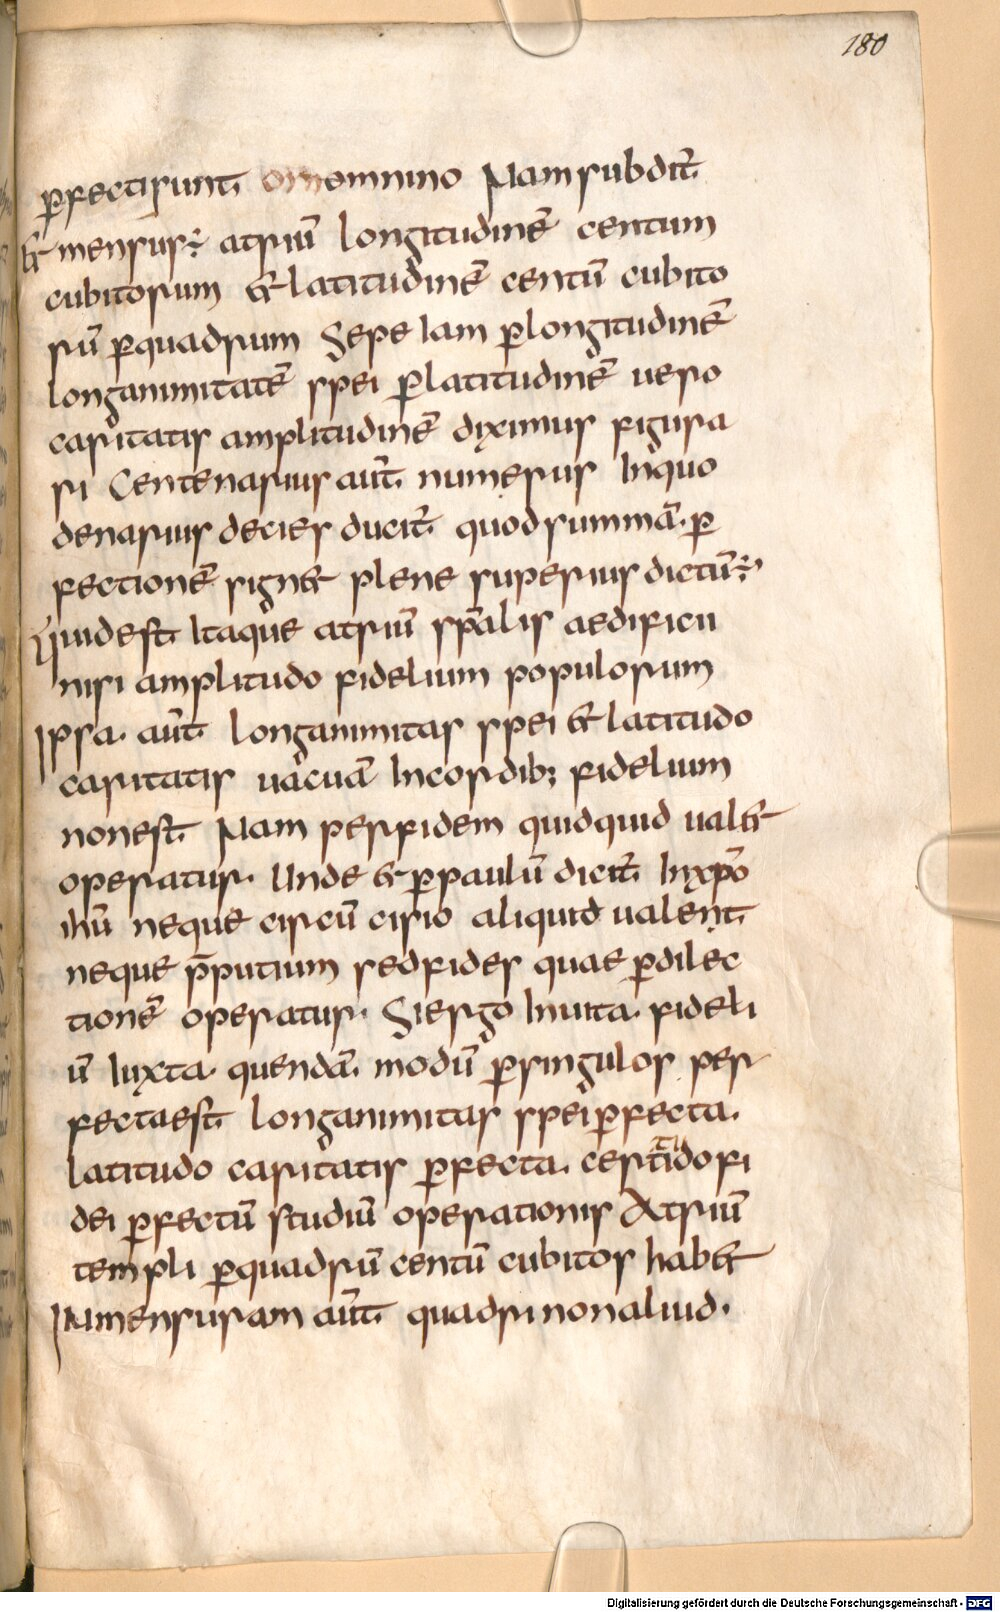 180
ꝑfectisunt ornemnino Nam subdit̄
& mensus; atriū longitudinē centum
cubitorum & latitudinē centū cubito
rū ꝑquadrum Sepe iam ꝑlongitudinē
longanimitatē spei ꝑlatitudinē uero
caritatis amplitudinē diximus figura
ri Centenarius aūt numerus Inquo
denarius decies ducit̄ quod summā ꝑ
fectionē sign& plene superius dictū;
Quidest Itaque atriū sp̄alis aedificii
nisi amplitudo fidelium populorum
Ipsa aūt longanimitas spei & latitudo
caritatis uacua Incordib; fidelium
nonest Nam perfidem quidquid ual&
operatur. Unde & ꝑpaulū dicit̄ Inxp̄o
ih̄u neque circū cisio aliquid ualent
neque p̄putium sedfides quae ꝑdilec
tionē operatur. Siergo Inuita fideli
ū Iuxta quendā modū ꝑsingulos per
fectaest longanimitas spei ꝑfecta.
latitudo caritatis ꝑfecta certidofi
tu
dei ꝑfectū studiū operationis Atriū
templi ꝑquadrū centū cubitos hab&
Inmensuram aūt quadri nonaliud.
Digitalisierung gefördert durch die Deutsche Forschungsgemeinschaft - DFG